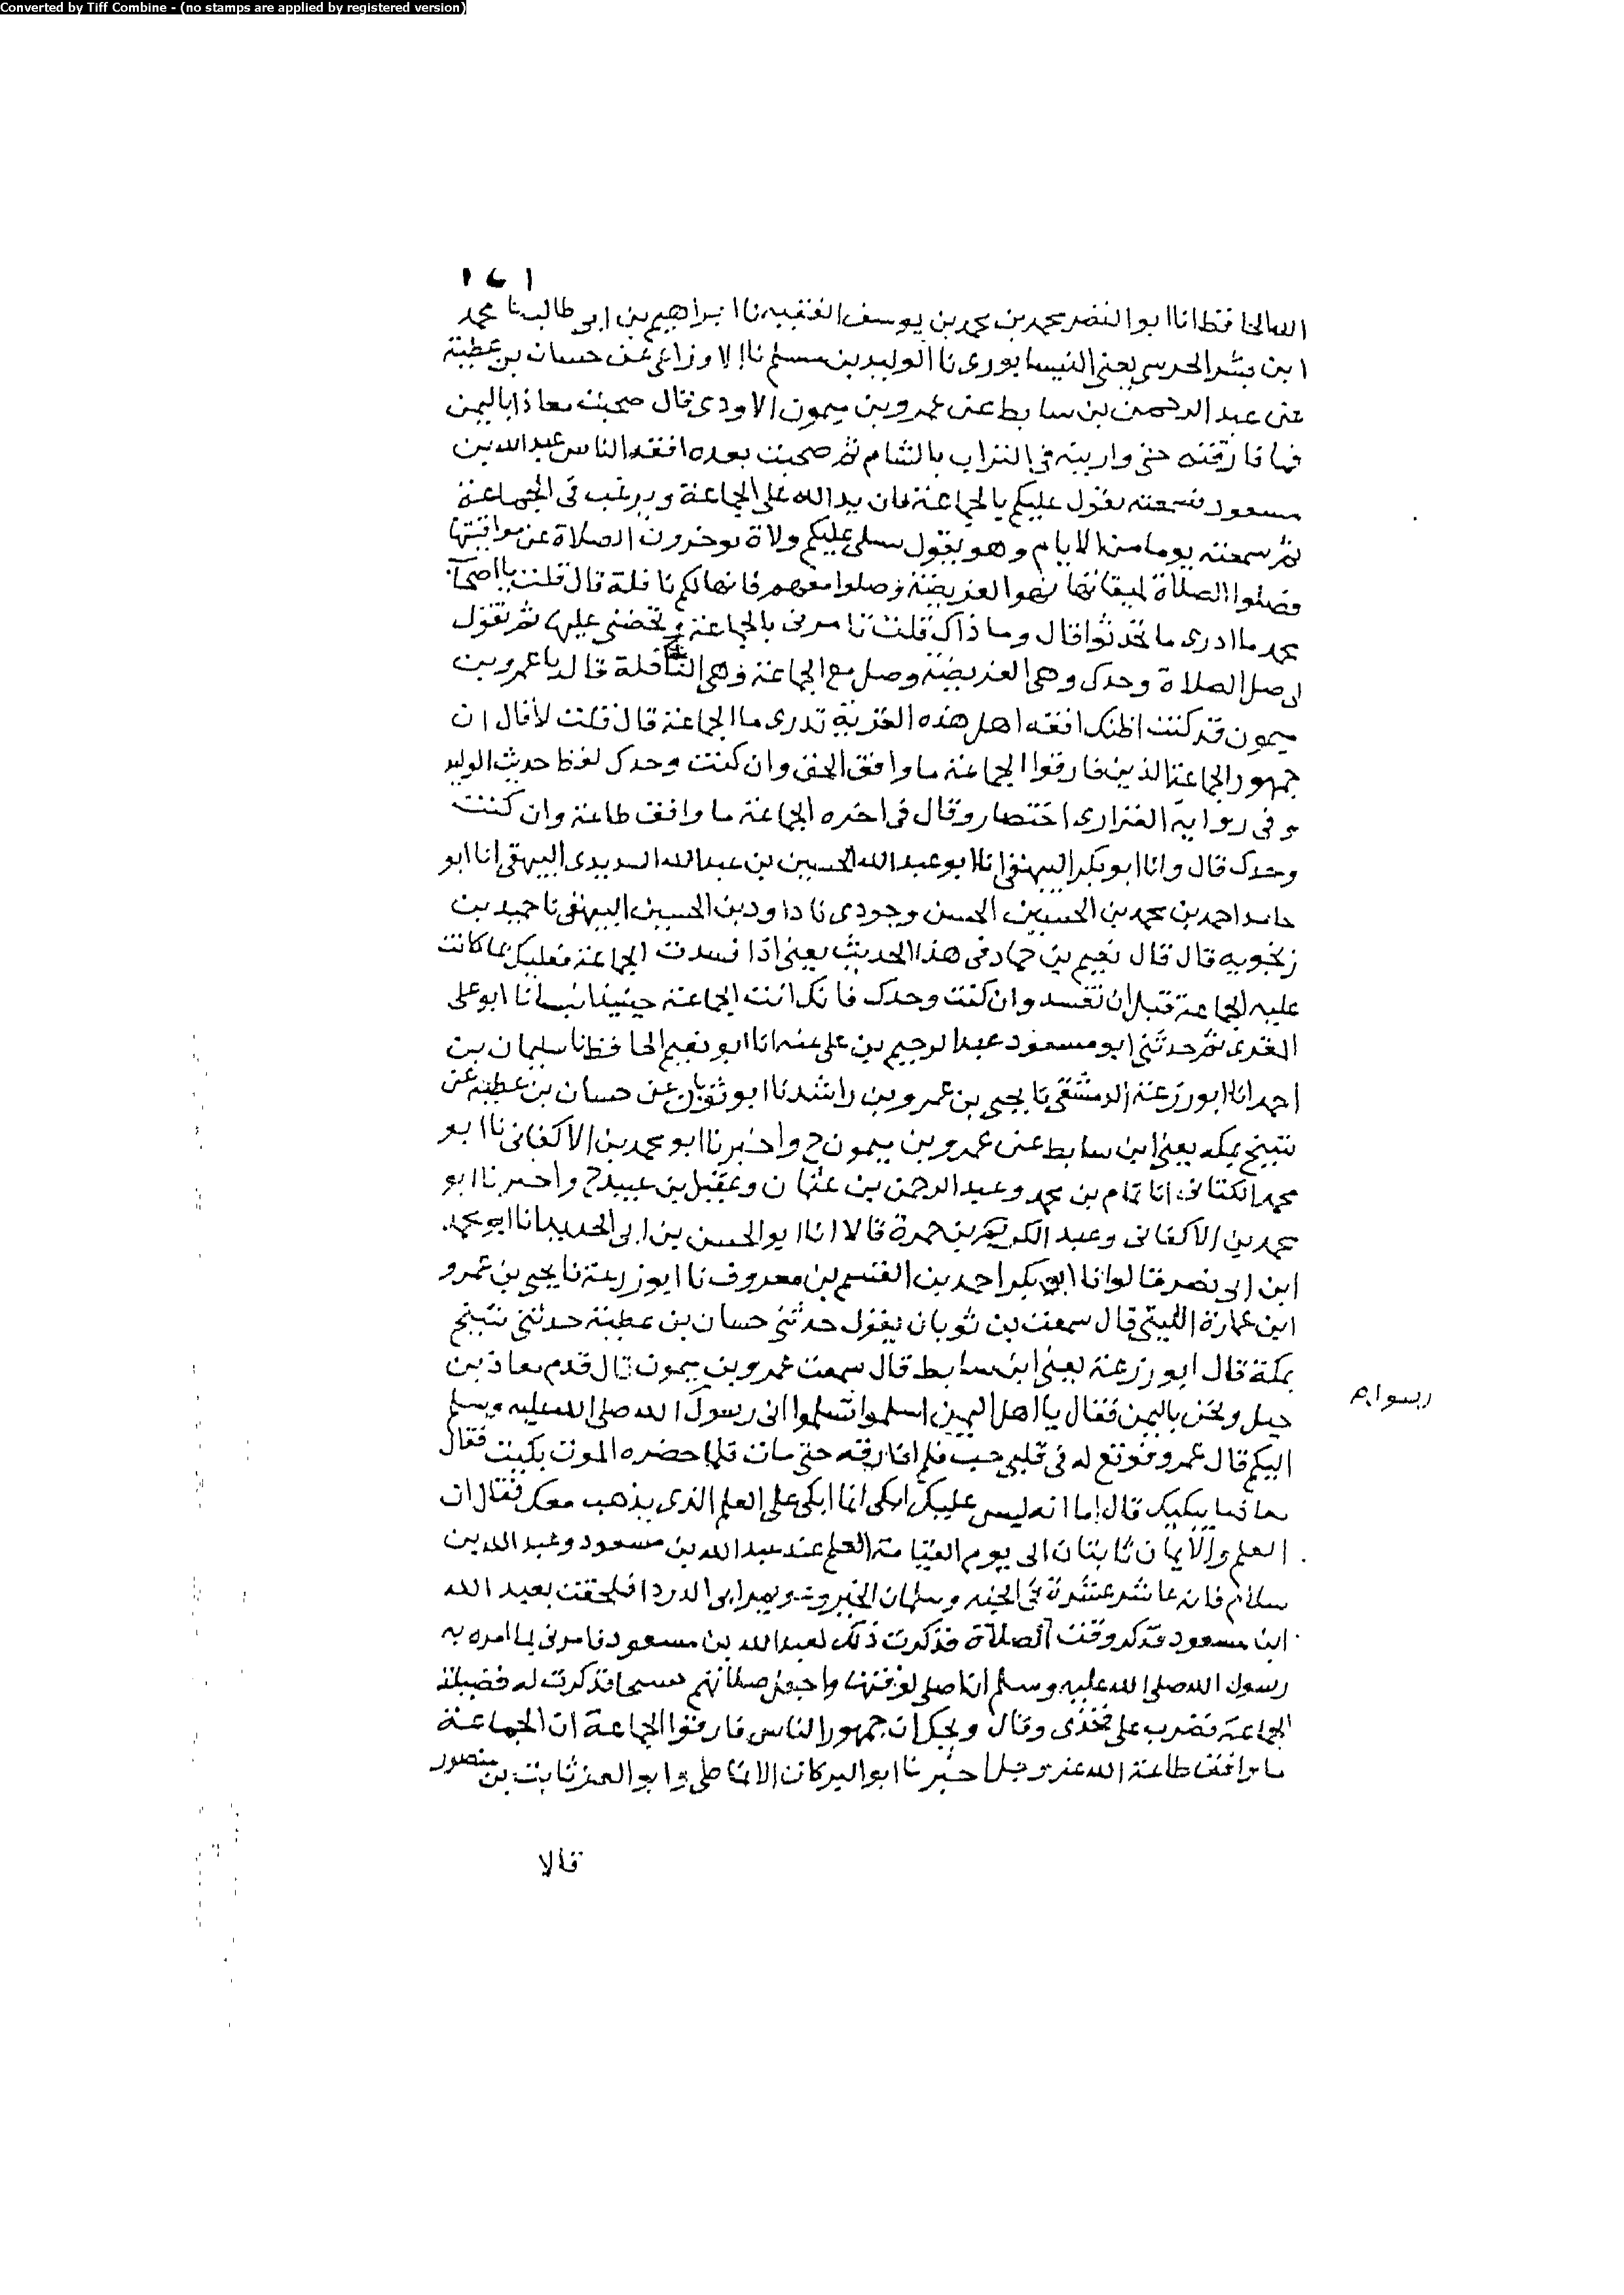 Converted by Tiff Combine - (no stamps are applied by registered version)
الله الحافظ انا ابو النضر محمد بن محمد بن يوسف الفقيه نا ابراهيم بن ابى طالب نا محمد
ابن بشر الحرسى يعنى النيسابورى نا الوليد بن مسلم نا الاوزاعى عن حسان بن عطية
عن عبد الرحمن بن سابط عن عمرو بن ميمون الاودى قال صحبت معاذا باليمن
فما فارقته حتى واريته فى التراب بالشام ثم صحبت بعده افقه الناس عبد الله بن
مسعود فسمعته يقول عليكم بالجماعة فان يد الله على الجماعة ويرغب فى الجماعة
ثم سمعته يوما من الايام وهو يقول سيلى عليكم ولاة يوخرون الصلاة عن مواقيتها
فصلوا الصلاة لميقاتها فهو الفريضة وصلوا معهم فانها لكم نافلة قال قلت يا اصحاب
محمد ما ادرى ما تحدثوا قال وما ذاك قلت تامرنى بالجماعة وتحضنى عليها ثم تقول
لى صل الصلاة وحدك وهى الفريضة وصل مع الجماعة وهى النافلة قال يا عمرو بن
ميمون قد كنت اظنك افقه اهل هذه القرية تدرى ما الجماعة قال قلت لا قال ان
جمهور الجماعة الذين فارقوا الجماعة ما وافق الحق وان كنت وحدك لفظ حديث الوليد
وفى رواية الفزارى اختصار وقال فى اخره الجماعة ما وافق طاعة وان كنت
وحدك قال وانا ابو بكر البيهقى انا ابو عبد الله الحسين بن عبد الله السديدى البيهقى انا ابو
حامد احمد بن محمد بن الحسين الحسن وجودى نا داود بن الحسين البيهقى نا حميد بن
زنجويه قال قال نعيم بن حماد فى هذا الحديث يعنى اذا فسدت الجماعة فعليك بما كانت
عليه الجماعة قبل ان تفسد وان كنت وحدك فانك انت الجماعة حينيذ انبانا ابو على
المقرى ثم حدثنى ابو مسعود عبد الرحيم بن على عنه انا ابو نعيم الحافظ نا سليمان بن
احمد انا ابو زرعة الدمشقى نا يحيى بن عمرو بن راشد نا ابو ثوبان عن حسان بن عطية عن
شيخ بمكة يعنى ابن سابط عن عمرو بن ميمون ح واخبرنا ابو محمد بن الاكفانى نا ابو
محمد الكتانى انا تمام بن محمد وعبد الرحمن بن عثمان وعقيل بن عبيد ح واخبرنا ابو
محمد بن الاكفانى وعبد الكريم بن حمزة قالا انا ابو الحسن بن ابى الحديد انا ابو محمد
ابن ابى نصر قالوا نا ابو بكر احمد بن القسم بن معروف نا ابو زرعة نا يحيى بن عمرو
ابن عمارة الليثى قال سمعت بن ثوبان يقول حدثنى حسان بن عطية حدثنى شيخ
بمكة قال ابو زرعة يعنى ابن سابط قال سمعت عمرو بن ميمون قال قدم معاذ بن
جبل ونحن باليمن فقال يا اهل اليمن اسلموا تسلموا انى رسول الله صلى الله عليه وسلم
اليكم قال عمرو فوقع له فى قلبى حب فلم افارقه حتى مات فلما حضره الموت بكيت فقال
معاذ ما يبكيك قال اما انه ليس عليك ابكى انما ابكى على العلم الذى يذهب معك فقال ان
العلم والايمان ثابتان الى يوم القيامة العلم عند عبد الله بن مسعود وعبد الله بن
سلام فانه عاشر عشرة فى الجنه وسلمان الخير وعويمر ابى الدردا فلحقت بعبد الله
ابن مسعود فذكر وقت الصلاة فذكرت ذلك لعبد الله بن مسعود فامرنى بما امره به
رسول الله صلى الله عليه وسلم ان اصلى لوقتها واجعل صلاتهم تسبيحا فذكرت له فضيلة
الجماعة فضرب على فخذى وقال ويحك ان جمهور الناس فارقوا الجماعة ان الجماعة
ما وافق طاعة الله عز وجل اخبرنا ابو البركات الانماطى وابو العز ثابت بن منصور
قالا